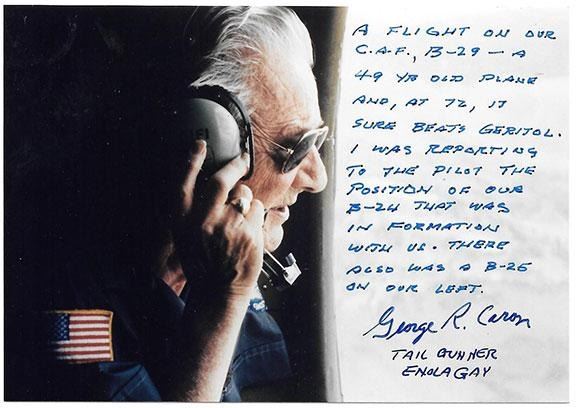 A FLIGHT ON OUR
C.A.F., B-29 — A
49 YR OLD PLANE
AND, AT 72, IT
SURE BEATS GERITOL.
I WAS REPORTING
TO THE PILOT THE
POSITION OF OUR
B-24 THAT WAS
IN FORMATION
WITH US. THERE
ALSO WAS A B-25
ON OUR LEFT.
George R. Caron
TAIL GUNNER
ENOLA GAY